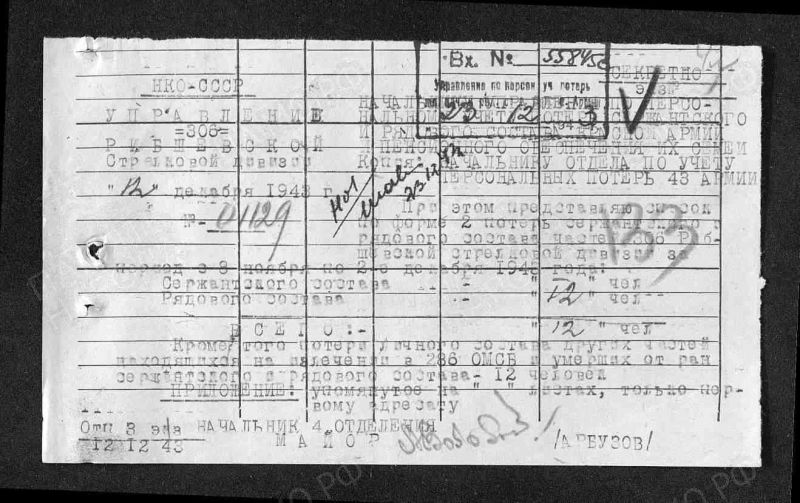 Вх. № 55845с
СЕКРЕТНО
НКО-СССР
УПРАВЛЕНИЕ
=306=
РИБШЕВСКОЙ
Стрелковой дивизии
"12" декабря 1943 г.
№- 01129
Управление по персон. уч. потерь
23 12 3
НАЧАЛЬНИКУ ПЕРСО-
НАЛЬНОМУ СЕРЖАНТСКОГО
И РЯДОВОГО СОСТАВА КРАСНОЙ АРМИИ
И ПЕНСИОННОГО ОБЕСПЕЧЕНИЯ ИХ СЕМЕЙ
Копия: НАЧАЛЬНИКУ ОТДЕЛА ПО УЧЕТУ
ПЕРСОНАЛЬНЫХ ПОТЕРЬ 43 АРМИИ
При этом представляю список
по форме 2 потерь сержантского
рядового состава частей 306 Риб-
шевской стрелковой дивизии за
период с 3 ноября по 2-е декабря 1943 года:
Сержантского состава " " чел
Рядового состава "12" чел
ВСЕГО:- "12" чел
Кроме того потери личного состава других частей
находящихся на излечении в 286 ОМСБ и умерших от ран
сержантского и рядового состава- 12 человек
ПРИЛОЖЕНИЕ: упомянутое на " " листах, только пер-
вому адресату
Отп 3 экз НАЧАЛЬНИК 4 ОТДЕЛЕНИЯ
12 12 43 МАЙОР /АРБУЗОВ/
133